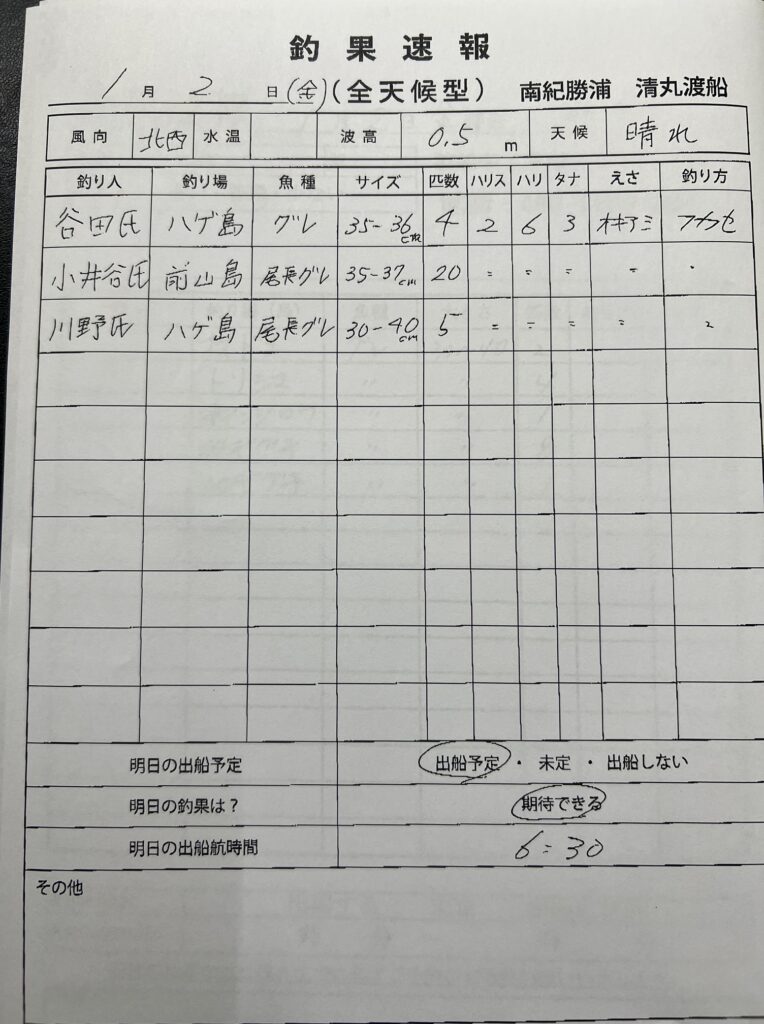 釣果速報
1月2日(金)(全天候型) 南紀勝浦 清丸渡船
風向 北西 水温 波高 0.5 m 天候 晴れ
釣り人 釣り場 魚種 サイズ 匹数 ハリス ハリ タナ えさ 釣り方
谷田氏 ハゲ島 グレ 35-36cm 4 2 6 3 オキアミ フカセ
小井谷氏 前山島 尾長グレ 35-37cm 20 〃 〃 〃 〃 〃
川野氏 ハゲ島 尾長グレ 30-40cm 5 〃 〃 〃 〃 〃
明日の出船予定 出船予定 ・ 未定 ・ 出船しない
明日の釣果は? 期待できる
明日の出船航時間 6:30
その他